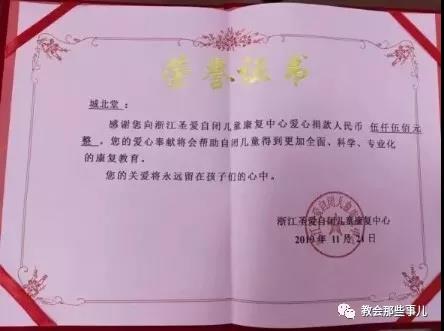 荣誉证书
城北堂：
感谢您向浙江圣爱自闭儿童康复中心爱心捐款人民币 伍仟伍佰元
整 。您的爱心奉献将会帮助自闭儿童得到更加全面、科学、专业化
的康复教育。
您的关爱将永远留在孩子们的心中。
浙江圣爱自闭儿童康复中心
2019 年 11 月 21 日
教会那些事儿